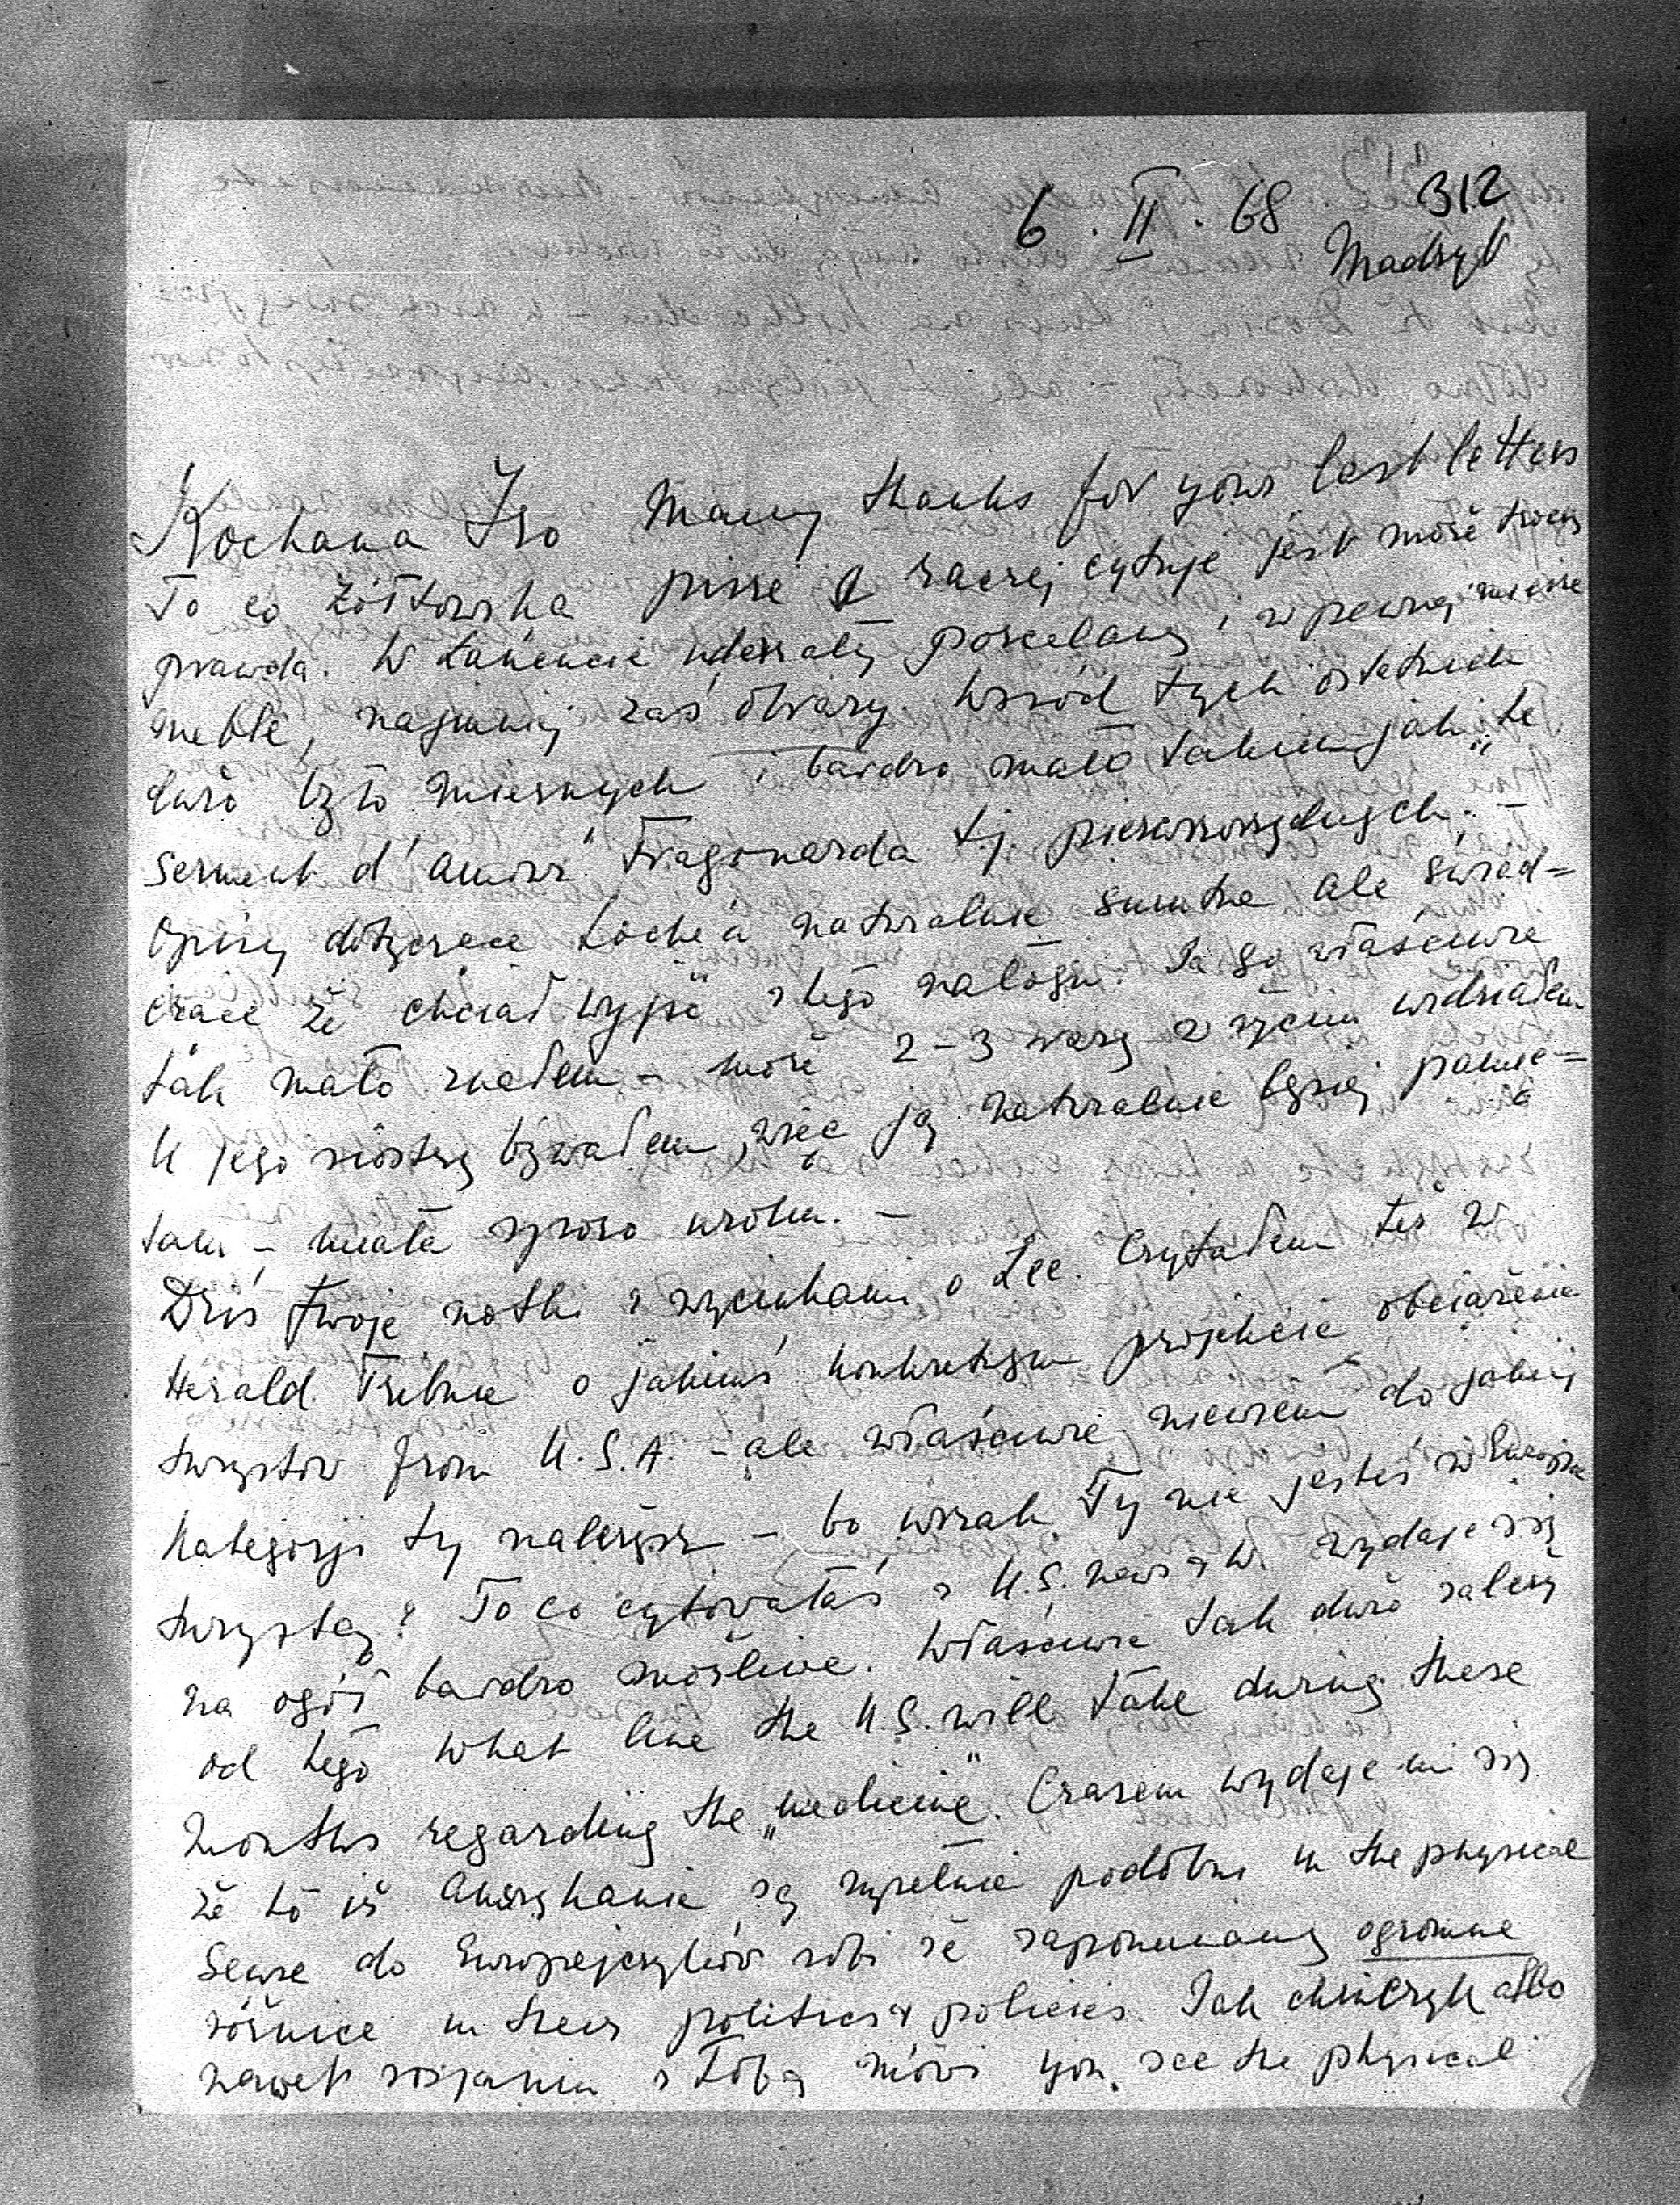 312
6 . II . 68
Madryt
Kochana Iso Many thanks for your last letters
To co Żółtowska pisze a raczej cytuje jest może trochę
prawda. W Łańcucie uderzały porcelany i w pewnej mierze
meble, najmniej zaś obrazy. Wśród tych ostatnich
dużo było miernych i bardzo mało takich jak „le
serment d'amour" Fragonarda t.j. pierwszorzędnych. –
Opisy dotyczące naturalnie smutne ale świad=
czące że chciał wyjść z tego nałogu. Ja go właściwie
tak mało znałem – może 2–3 razy w życiu widziałem
U jego siostry bywałem, więc ją naturalnie lepiej pamię=
tam – miała sporo uroku. –
Dziś twoje notki z wycinkami o Lee. Czytałem też w
Herald Tribune o jakimś konkretnym projekcie obciążenia
turystów from U.S.A. – ale właściwie niewiem do jakiej
kategorji ty należysz – bo wszak Ty nie jesteś w Europie
turystą? To co cytowałaś z U.S. news & W. wydaje się
na ogół bardzo możliwe. Właściwie tak dużo zależy
od tego what line the U.S. will take during these
months regarding the „medicine". Czasem wydaje mi się
że to iż Amerykanie są zupełnie podobni in the physical
sense do Europejczyków robi że zapominamy ogromne
różnice in their politics & policies. Jak chińczyk albo
nawet rosjanin z Tobą mówi you see the physical